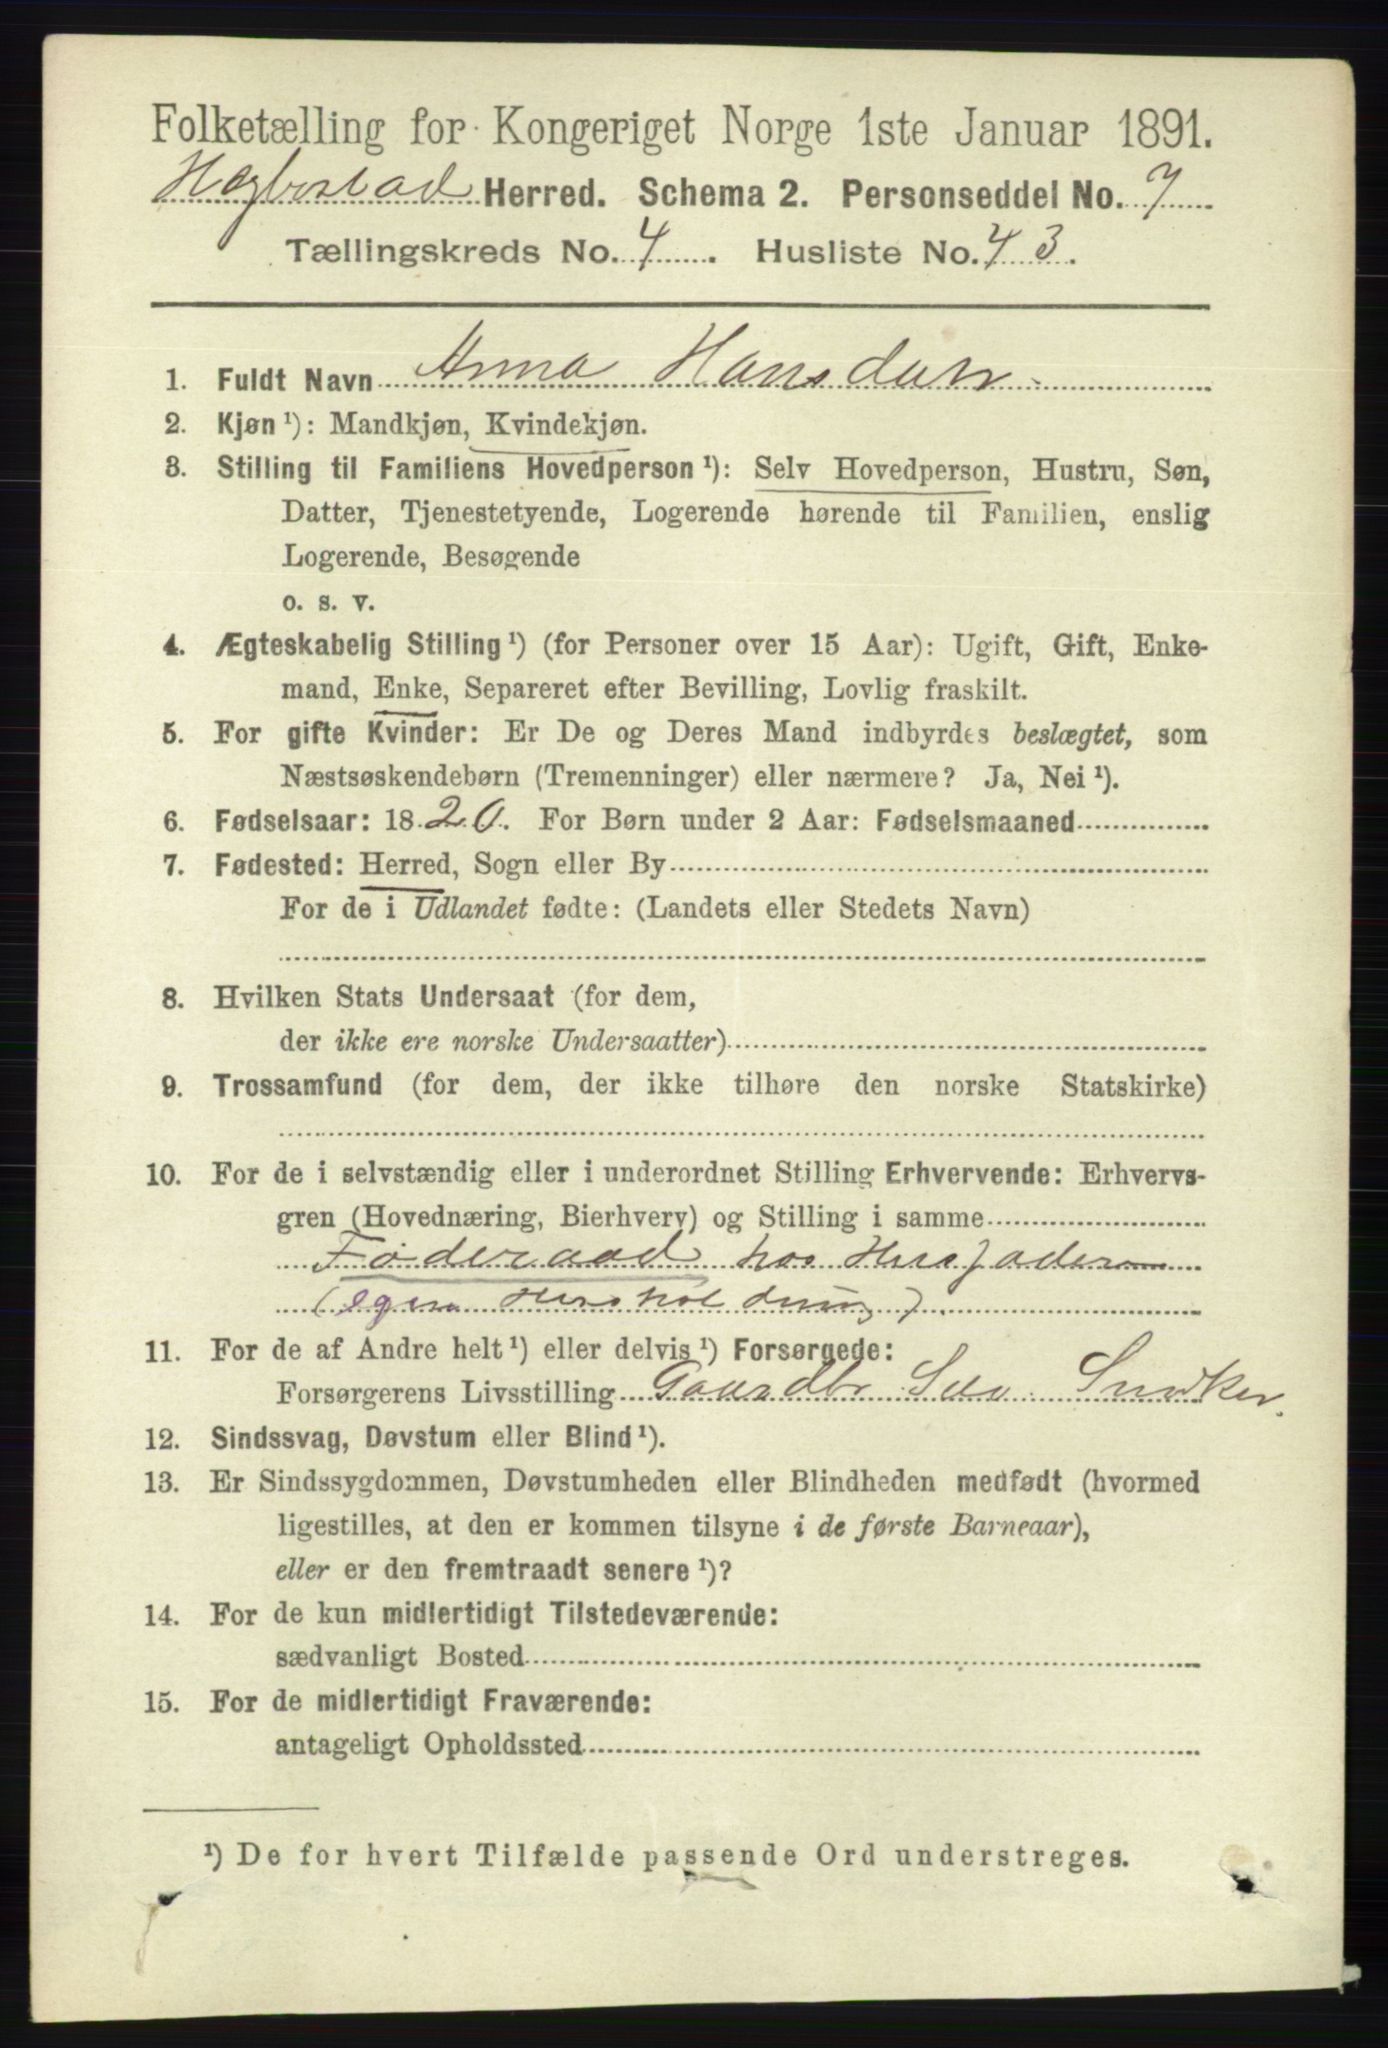 Folketælling for Kongeriget Norge 1ste Januar 1891.
Hægbostad Herred. Schema 2. Personseddel No. 7
Tællingskreds No. 4. Husliste No. 43.
1. Fuldt Navn Anna Hansdatr
2. Kjøn ¹): Mandkjøn, Kvindekjøn.
3. Stilling til Familiens Hovedperson ¹): Selv Hovedperson, Hustru, Søn,
Datter, Tjenestetyende, Logerende hørende til Familien, enslig
Logerende, Besøgende
o. s. v.
4. Ægteskabelig Stilling ¹) (for Personer over 15 Aar): Ugift, Gift, Enke-
mand, Enke, Separeret efter Bevilling, Lovlig fraskilt.
5. For gifte Kvinder: Er De og Deres Mand indbyrdes beslægtet, som
Næstsøskendebørn (Tremenninger) eller nærmere? Ja, Nei ¹).
6. Fødselsaar: 1820. For Børn under 2 Aar: Fødselsmaaned
7. Fødested: Herred, Sogn eller By
For de i Udlandet fødte: (Landets eller Stedets Navn)
8. Hvilken Stats Undersaat (for dem,
der ikke ere norske Undersaatter)
9. Trossamfund (for dem, der ikke tilhøre den norske Statskirke)
10. For de i selvstændig eller i underordnet Stilling Erhvervende: Erhvervs-
gren (Hovednæring, Bierhverv) og Stilling i samme
Føderaad hos Husfaderen
(egen Husholdning).
11. For de af Andre helt ¹) eller delvis ¹) Forsørgede:
Forsørgerens Livsstilling Gaardbr Selv Snedker.
12. Sindssvag, Døvstum eller Blind ¹).
13. Er Sindssygdommen, Døvstumheden eller Blindheden medfødt (hvormed
ligestilles, at den er kommen tilsyne i de første Barneaar),
eller er den fremtraadt senere ¹)?
14. For de kun midlertidigt Tilstedeværende:
sædvanligt Bosted
15. For de midlertidigt Fraværende:
antageligt Opholdssted
¹) De for hvert Tilfælde passende Ord understreges.